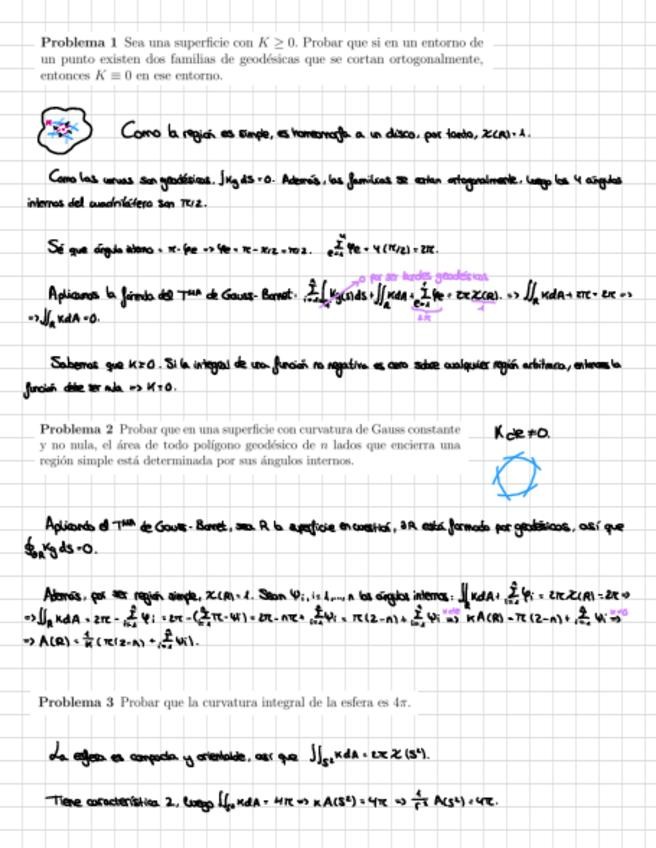 Problema 1 Sea una superficie con K ≥ 0. Probar que si en un entorno de
un punto existen dos familias de geodésicas que se cortan ortogonalmente,
entonces K ≡ 0 en ese entorno.
Como la región es simple, es homeomorfa a un disco, por tanto, χ(R)=1.
Como las curvas son geodésicas, ∫Kg ds = 0. Además, las familias se cortan ortogonalmente, luego los 4 ángulos
internos del cuadrilátero son π/2.
Sé que ángulo interno = π - φe => φe = π - π/2 = π/2. Σ φe = 4(π/2) = 2π.
0 por ser bordes geodésicos
Aplicamos la fórmula del Tma de Gauss-Bonnet: Σ∫Kg(s)ds + ∬_R KdA + Σ φe = 2π χ(R). => ∬_R KdA + 2π = 2π =>
2π 1
=> ∬_R KdA = 0.
Sabemos que K≥0. Si la integral de una función no negativa es cero sobre cualquier región arbitraria, entonces la
función debe ser nula => K=0.
Problema 2 Probar que en una superficie con curvatura de Gauss constante
y no nula, el área de todo polígono geodésico de n lados que encierra una
región simple está determinada por sus ángulos internos.
K cte ≠ 0.
Aplicando el Tma de Gauss-Bonnet, sea R la superficie en cuestión, ∂R está formado por geodésicas, así que
∮_∂R Kg ds = 0.
Además, por ser región simple, χ(R)=1. Sean ψi, i=1,...,n los ángulos internos: ∬_R KdA + Σ φi = 2π χ(R) = 2π =>
K cte K≠0
=> ∬_R KdA = 2π - Σ φi = 2π - (Σ π - ψi) = 2π - nπ + Σ ψi = π(2-n) + Σ ψi => K A(R) = π(2-n) + Σ ψi =>
=> A(R) = 1/K (π(2-n) + Σ ψi).
Problema 3 Probar que la curvatura integral de la esfera es 4π.
La esfera es compacta y orientable, así que ∬_S² KdA = 2π χ(S²).
Tiene característica 2, luego ∬_S² KdA = 4π => K A(S²) = 4π => 1/r² A(S²) = 4π.